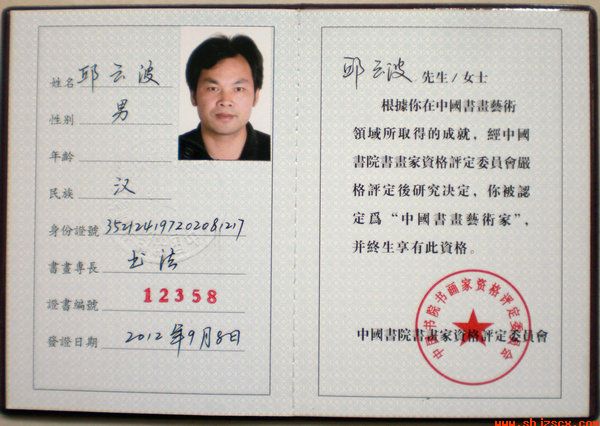 姓名 邱云波
性别 男
年齡
民族 汉
身份證號 352124197202081217
書畫專長 书法
證書編號 12358
發證日期 2012年9月8日
邱云波 先生/女士
根據你在中國書畫藝術
領域所取得的成就，經中國
書院書畫家資格評定委員會嚴
格評定後研究决定，你被認
定爲“中國書畫藝術家”，
并終生享有此資格。
中國書院書畫家資格評定委員會
中国书院书画家资格评定委员会